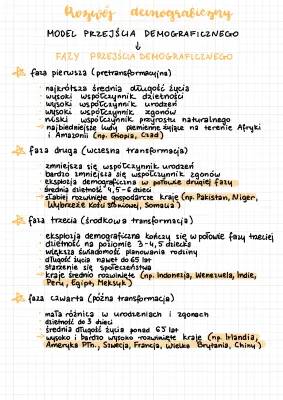 Rozwój demograficzny
MODEL PRZEJŚCIA DEMOGRAFICZNEGO
↓
FAZY PRZEJŚCIA DEMOGRAFICZNEGO
faza pierwsza (pretransformacyjna)
· najkrótsza średnia długość życia
· wysoki współczynnik dzietności
· wysoki współczynnik urodzeń
· wysoki współczynnik zgonów
· niski współczynnik przyrostu naturalnego
→ najbiedniejsze ludy plemienne żyjące na terenie Afryki
i Amazonii (np. Etiopia, Czad)
faza druga (wczesna transformacja)
· zmniejsza się współczynnik urodzeń
· bardzo zmniejsza się współczynnik zgonów
· eksplozja demograficzna w połowie drugiej fazy
· średnia dzietność 4,5-6 dzieci
→ słabiej rozwinięte gospodarczo kraje (np. Pakistan, Niger,
Wybrzeże Kości Słoniowej, Somalia)
faza trzecia (środkowa transformacja)
· eksplozja demograficzna kończy się w połowie fazy trzeciej
· dzietność na poziomie 3-4,5 dziecka
· większa świadomość planowania rodziny
· długość życia nawet do 65 lat
· starzenie się społeczeństwa
→ kraje średnio rozwinięte (np. Indonezja, Wenezuela, Indie,
Peru, Egipt, Meksyk)
faza czwarta (późna transformacja)
· mała różnica w urodzeniach i zgonach
· dzietność do 3 dzieci
· średnia długość życia ponad 65 lat
→ wysoko i bardzo wysoko rozwinięte kraje (np. Irlandia,
Ameryka Płn., Szwecja, Francja, Wielka Brytania, Chiny)